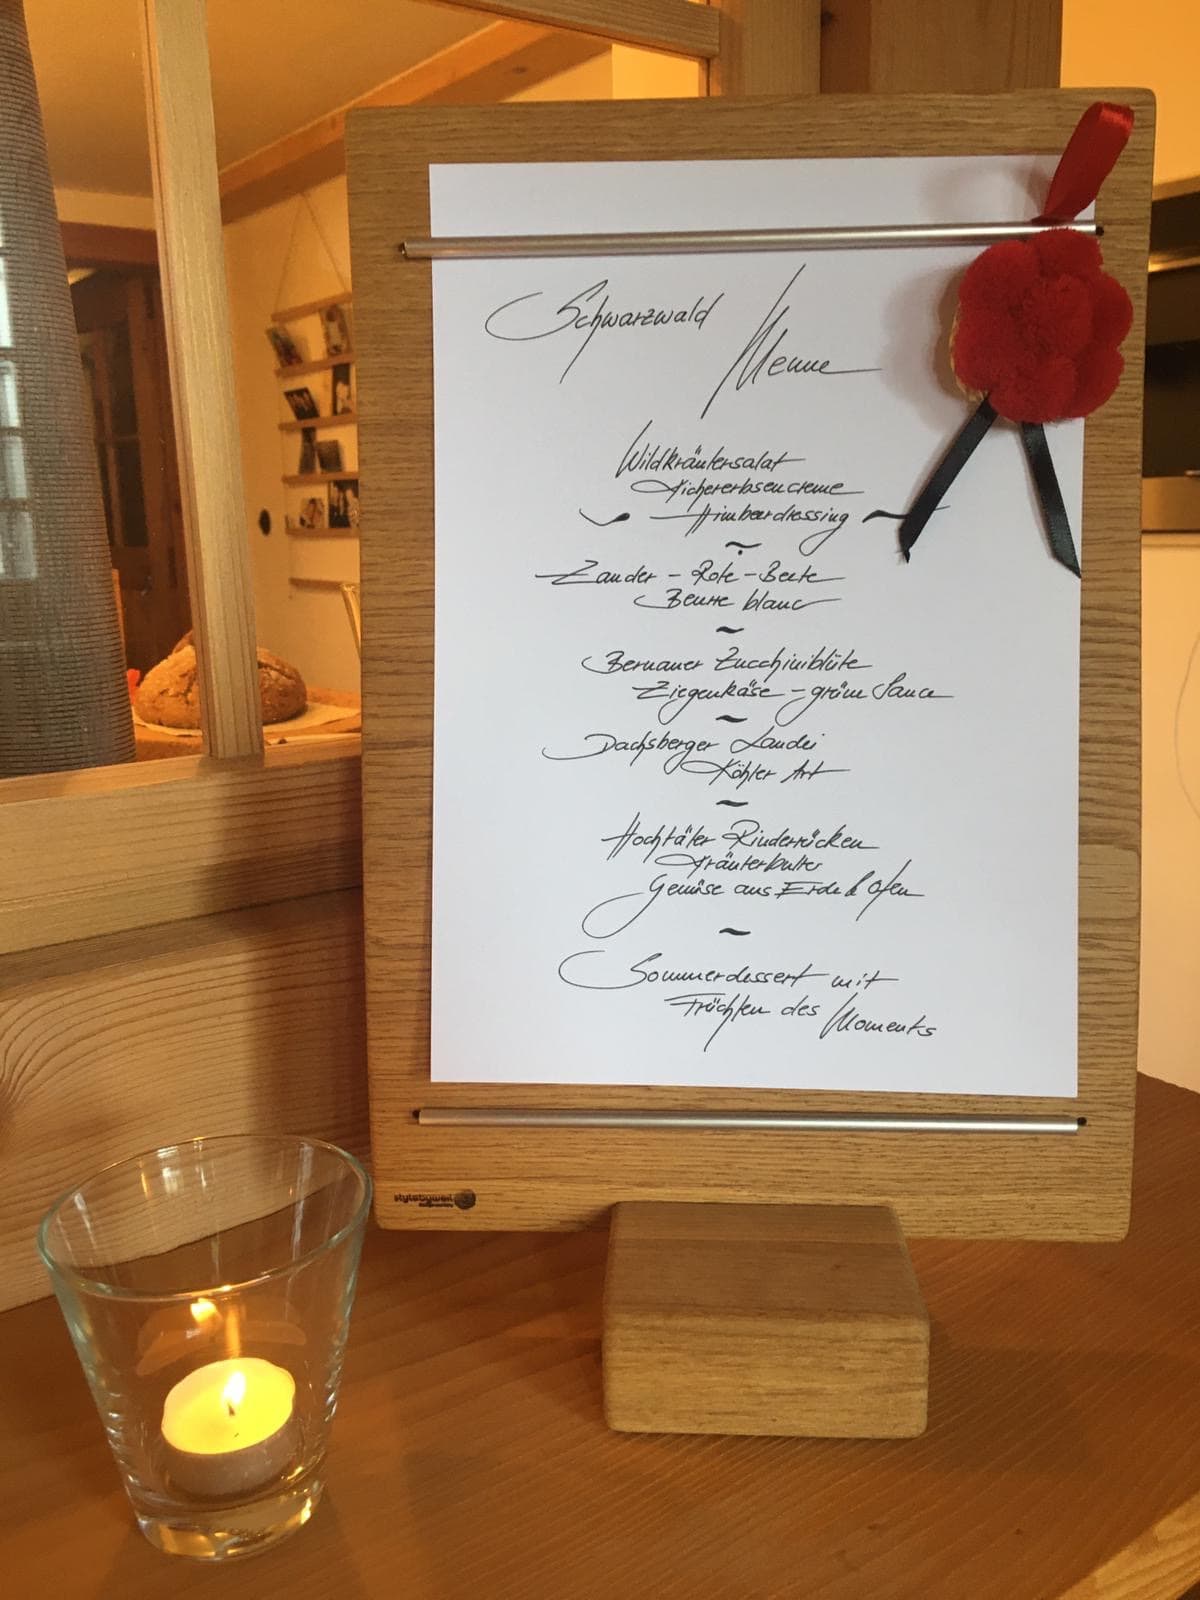 Schwarzwald
Menue
Wildkräutersalat
Kichererbsencreme
Himbeerdressing
Zander - Rote - Beete
Beurre blanc
Bernauer Zucchiniblüte
Ziegenkäse - grüne Sauce
Dachsberger Landei
Köhler Art
Hochtäler Rinderrücken
Kräuterbutter
Gemüse aus Erde & Ofen
Sommerdessert mit
Früchten des Moments
stylebyweil